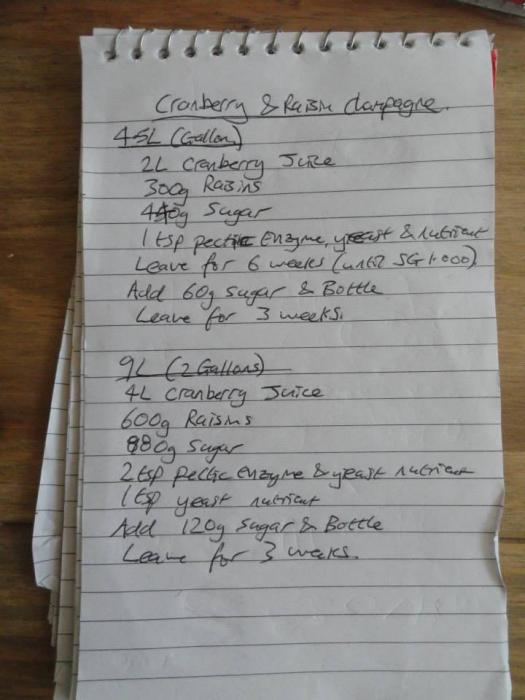 Cranberry & Raisin Champagne.
4.5L (Gallon)
2L Cranberry Juice
300g Raisins
440g Sugar
1 tsp pectic Enzyme, yeast & nutrient
Leave for 6 weeks (until SG 1.000)
Add 60g sugar & Bottle
Leave for 3 weeks.
9L (2 Gallons)
4L Cranberry Juice
600g Raisins
880g Sugar
2 tsp pectic enzyme & yeast nutrient
1 tsp yeast nutrient
Add 120g Sugar & Bottle
Leave for 3 weeks.